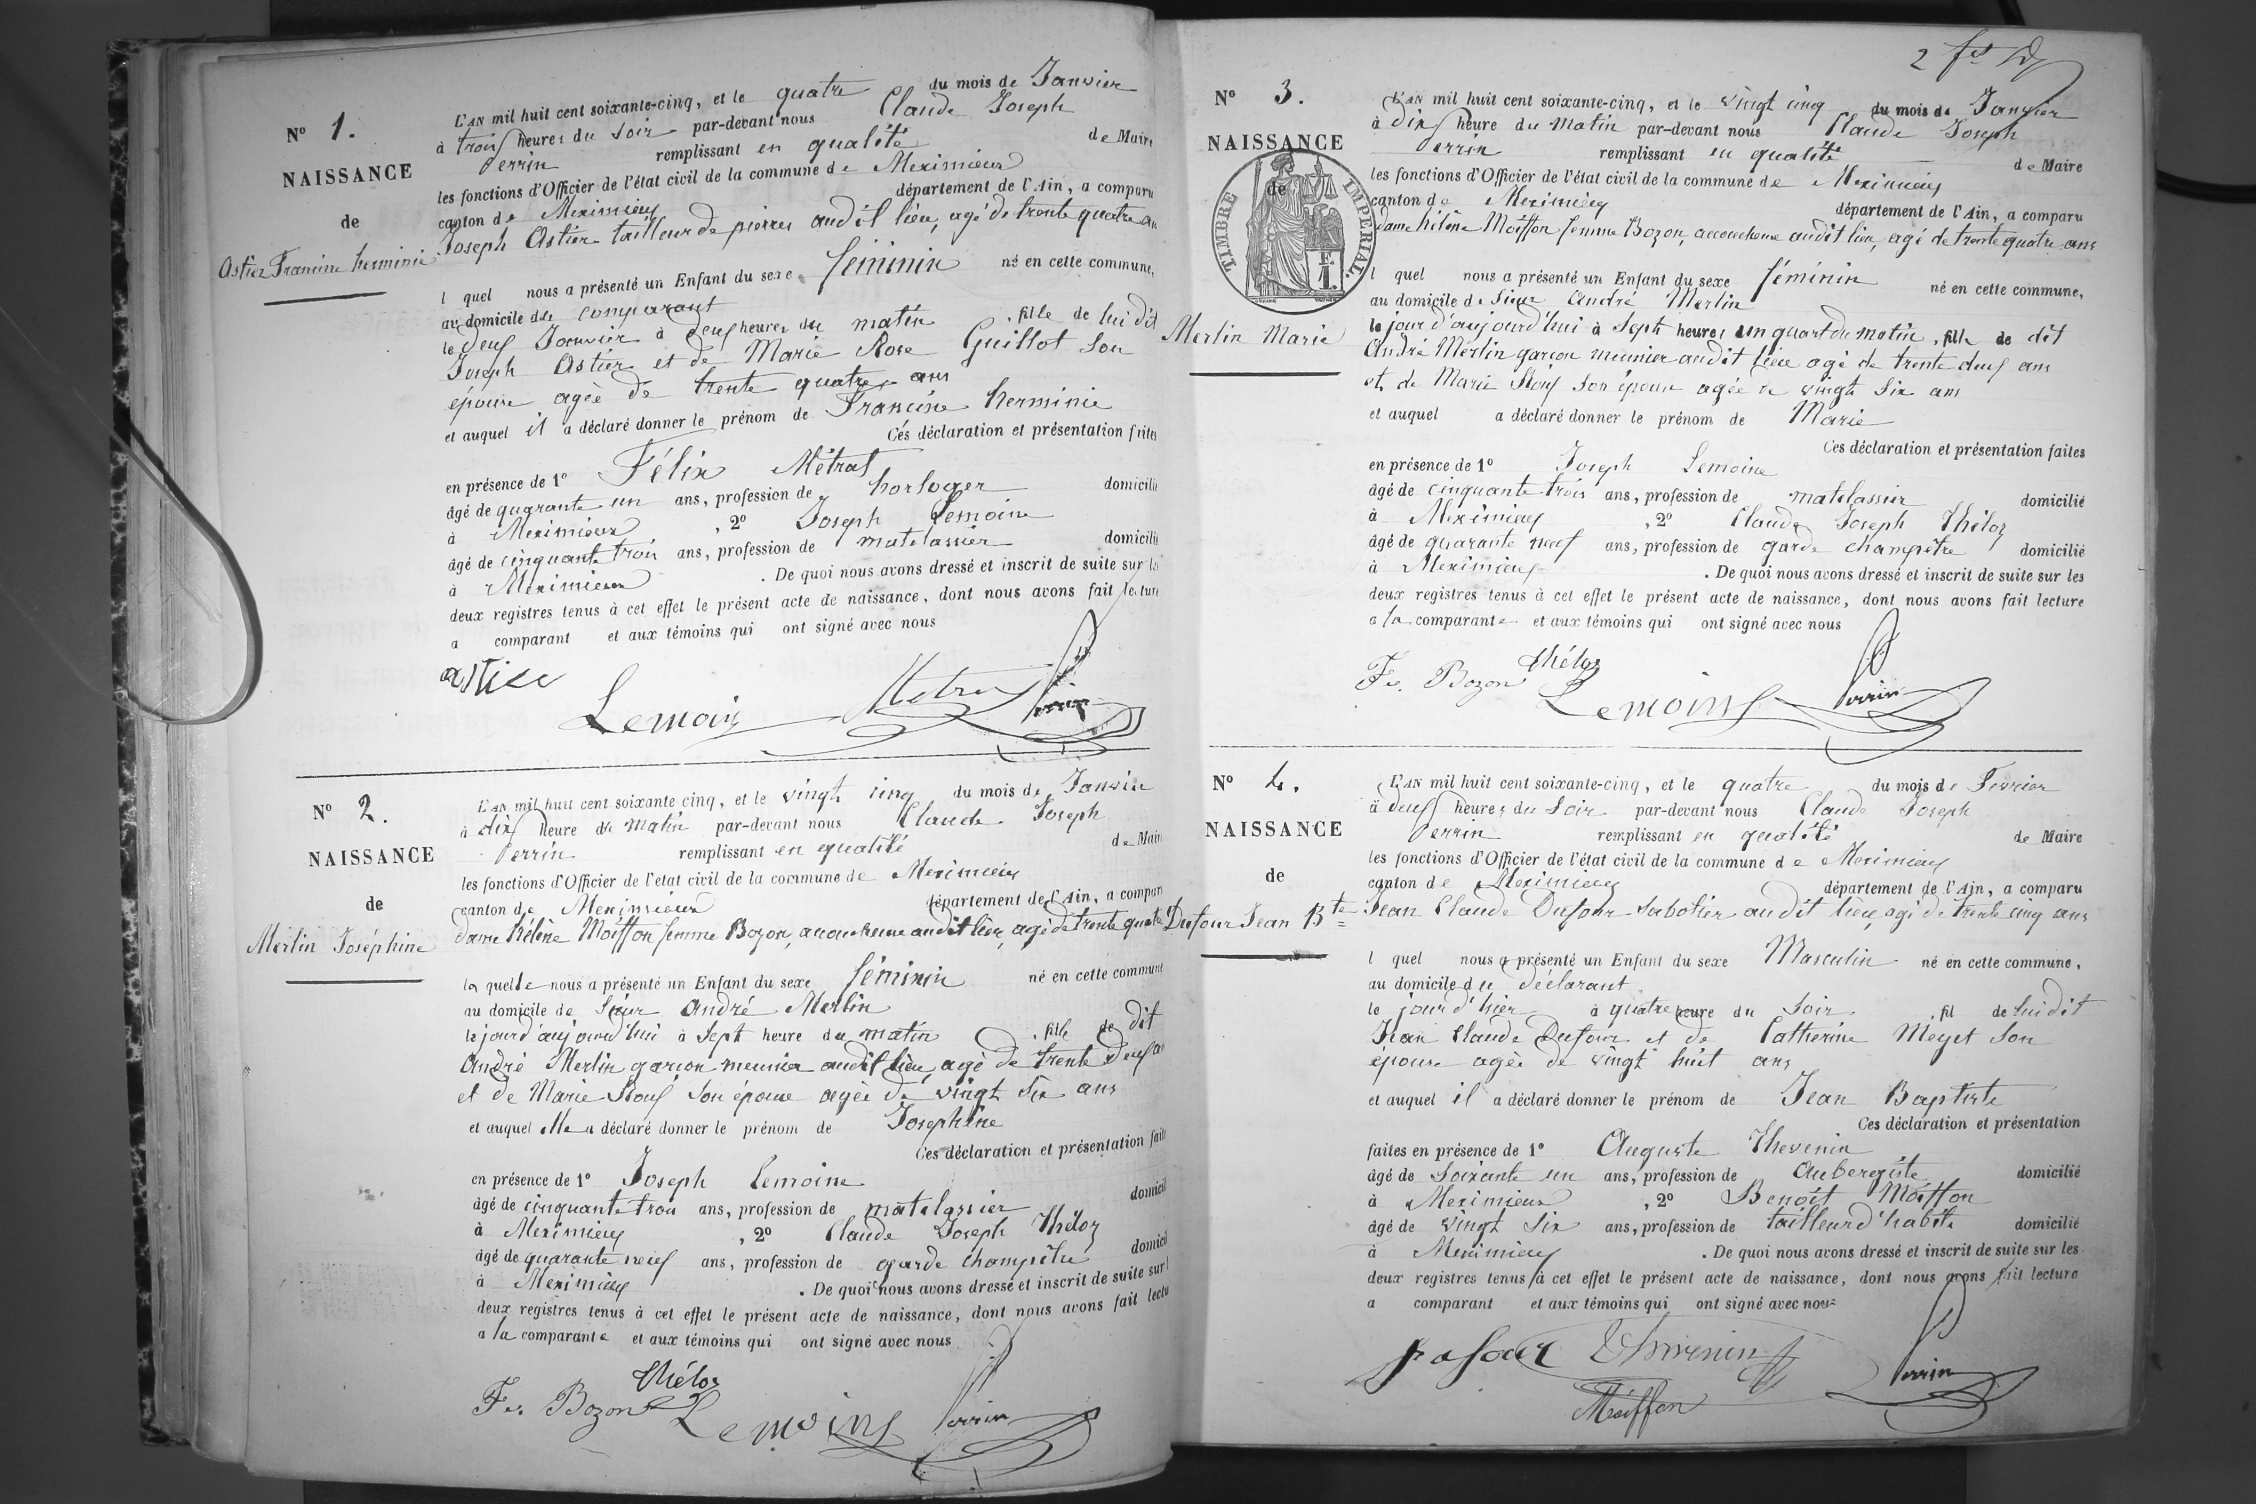 N° 1.
NAISSANCE
de
Astier Francine herminie
L'AN mil huit cent soixante-cinq, et le quatre du mois de Janvier
à trois heures du soir par-devant nous Claude Joseph
Perrin remplissant en qualité de Maire
les fonctions d'Officier de l'état civil de la commune de Meximieux
canton de Meximieux département de l'Ain, a comparu
Joseph Astier tailleur de pierres audit lieu, agé de trente quatre ans
l quel nous a présenté un Enfant du sexe féminin né en cette commune,
au domicile du comparant
le deux Janvier à deux heures du matin, fille de lui dit
Joseph Astier et de Marie Rose Guillot son
épouse agée de trente quatre ans
et auquel il a déclaré donner le prénom de Francine herminie
Ces déclaration et présentation faites
en présence de 1° Félix Métrat
âgé de quarante un ans, profession de horloger domicilié
à Meximieux, 2° Joseph Lemoine
âgé de cinquante trois ans, profession de matelassier domicilié
à Meximieux. De quoi nous avons dressé et inscrit de suite sur les
deux registres tenus à cet effet le présent acte de naissance, dont nous avons fait lecture
a comparant et aux témoins qui ont signé avec nous
astier
Lemoin Metra Perrin
N° 2.
NAISSANCE
de
Merlin Joséphine
L'AN mil huit cent soixante cinq, et le vingt cinq du mois de Janvier
à dix heure du matin par-devant nous Claude Joseph
Perrin remplissant en qualité de Maire
les fonctions d'Officier de l'état civil de la commune de Meximieux
canton de Meximieux département de l'Ain, a comparu
dame hélène Moiffon femme Bozon, accoucheuse audit lieu, agé de trente quatre
la quelle nous a présenté un Enfant du sexe féminin né en cette commune
au domicile de Sieur André Merlin
le jour d'aujourd'hui à sept heure du matin, fille de dit
André Merlin garçon meunier audit lieu, agé de trente deux ans
et de Marie Roux son épouse agée de vingt six ans
et auquel elle a déclaré donner le prénom de Joséphine
Ces déclaration et présentation faites
en présence de 1° Joseph Lemoine
âgé de cinquante trois ans, profession de matelassier domicilié
à Meximieux, 2° Claude Joseph Théloz
âgé de quarante neuf ans, profession de garde champêtre domicilié
à Meximieux. De quoi nous avons dressé et inscrit de suite sur l
deux registres tenus à cet effet le présent acte de naissance, dont nous avons fait lectu
a la comparante et aux témoins qui ont signé avec nous
théloz
Fe. Bozon Lemoine Perrin
2
N° 3.
NAISSANCE
de
TIMBRE IMPERIAL
F.
1.
Merlin Marie
L'AN mil huit cent soixante-cinq, et le vingt cinq du mois de Janvier
à dix heure du matin par-devant nous Claude Joseph
Perrin remplissant en qualité de Maire
les fonctions d'Officier de l'état civil de la commune de Meximieux
canton de Meximieux département de l'Ain, a comparu
dame hélène Moiffon femme Bozon, accoucheuse audit lieu, agé de trente quatre ans
l quel nous a présenté un Enfant du sexe féminin né en cette commune,
au domicile de Sieur André Merlin
le jour d'aujourd'hui à sept heures un quart du matin, fille de dit
André Merlin garçon meunier audit lieu agé de trente deux ans
et de Marie Roux son épouse agée de vingt six ans
et auquel a déclaré donner le prénom de Marie
Ces déclaration et présentation faites
en présence de 1° Joseph Lemoine
âgé de cinquante trois ans, profession de matelassier domicilié
à Meximieux, 2° Claude Joseph Théloz
âgé de quarante neuf ans, profession de garde champêtre domicilié
à Meximieux. De quoi nous avons dressé et inscrit de suite sur les
deux registres tenus à cet effet le présent acte de naissance, dont nous avons fait lecture
a la comparante et aux témoins qui ont signé avec nous
théloz
Fe. Bozon Lemoine Perrin
N° 4.
NAISSANCE
de
Dufour Jean Bte
L'AN mil huit cent soixante-cinq, et le quatre du mois de Fevrier
à deux heures du soir par-devant nous Claude Joseph
Perrin remplissant en qualité de Maire
les fonctions d'Officier de l'état civil de la commune de Meximieux
canton de Meximieux département de l'Ain, a comparu
Jean Claude Dufour sabotier audit lieu, agé de trente cinq ans
l quel nous a présenté un Enfant du sexe Masculin né en cette commune,
au domicile du déclarant
le jour d'hier à quatre heure du soir, fil de lui dit
Jean Claude Dufour et de Catherine Meyet son
épouse agée de vingt huit ans
et auquel il a déclaré donner le prénom de Jean Baptiste
Ces déclaration et présentation
faites en présence de 1° Auguste Thevenin
âgé de soixante un ans, profession de Aubergiste domicilié
à Meximieux, 2° Benoît Moiffon
âgé de vingt six ans, profession de tailleur d'habits domicilié
à Meximieux. De quoi nous avons dressé et inscrit de suite sur les
deux registres tenus à cet effet le présent acte de naissance, dont nous avons fait lecture
a comparant et aux témoins qui ont signé avec nous
Thevenin Perrin
Moiffon